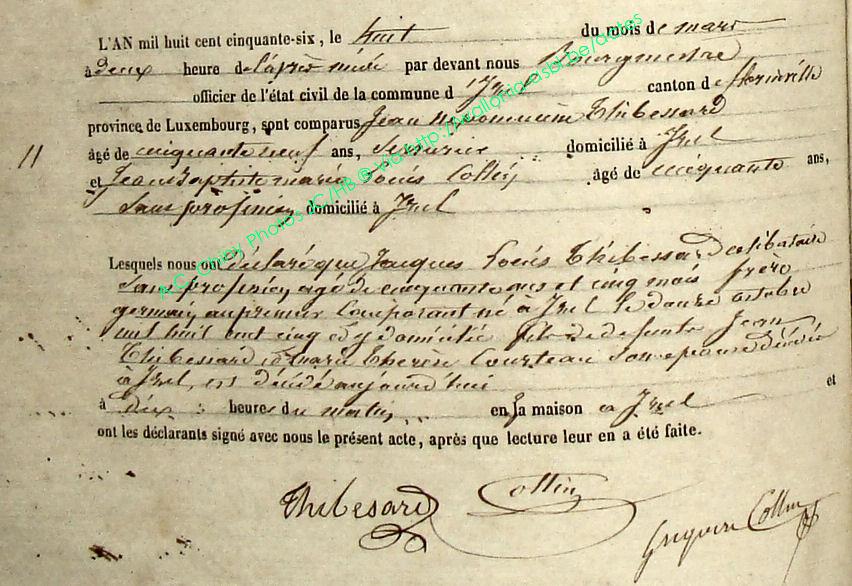 L'AN mil huit cent cinquante-six, le huit du mois de mars
à deux heure de l'après midi par devant nous Bourgmestre
officier de l'état civil de la commune d'Izel canton de florenville
province de Luxembourg, sont comparus Jean Thibessard
11 âgé de cinquante neuf ans, Serrurier domicilié à Izel
et Jean Baptiste marie Louis Collin âgé de cinquante ans,
Sans profession domicilié à Izel
Lesquels nous ont déclaré que Jacques Louis Thibessard célibataire
Sans profession, agé de cinquante ans et cinq mois frère
germain au premier Comparant né à Izel le douze octobre
mil huit cent cinq et y domicilié fils de defunts Jean
Thibessard et marie Therèse Courteau Son epouse décédée
à Izel, est décédé aujourd'hui
à dix heures du matin en sa maison à Izel et
ont les déclarants signé avec nous le présent acte, après que lecture leur en a été faite.
Thibesard Collin
Gregoire Collin
A.C. Chiny Photos JC/HB © Via http://wallonia-asbl.be/dates